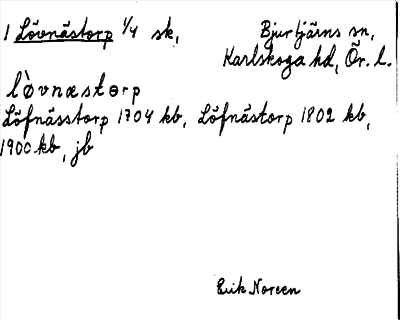 1 Lövnästorp 1/4 sk, Bjurtjärns sn,
Karlskoga hd, Ör. l.
lòvnæstɵrp
Löfnässtorp 1704 kb, Löfnästorp 1802 kb,
1900 kb, jb
Erik Noreen